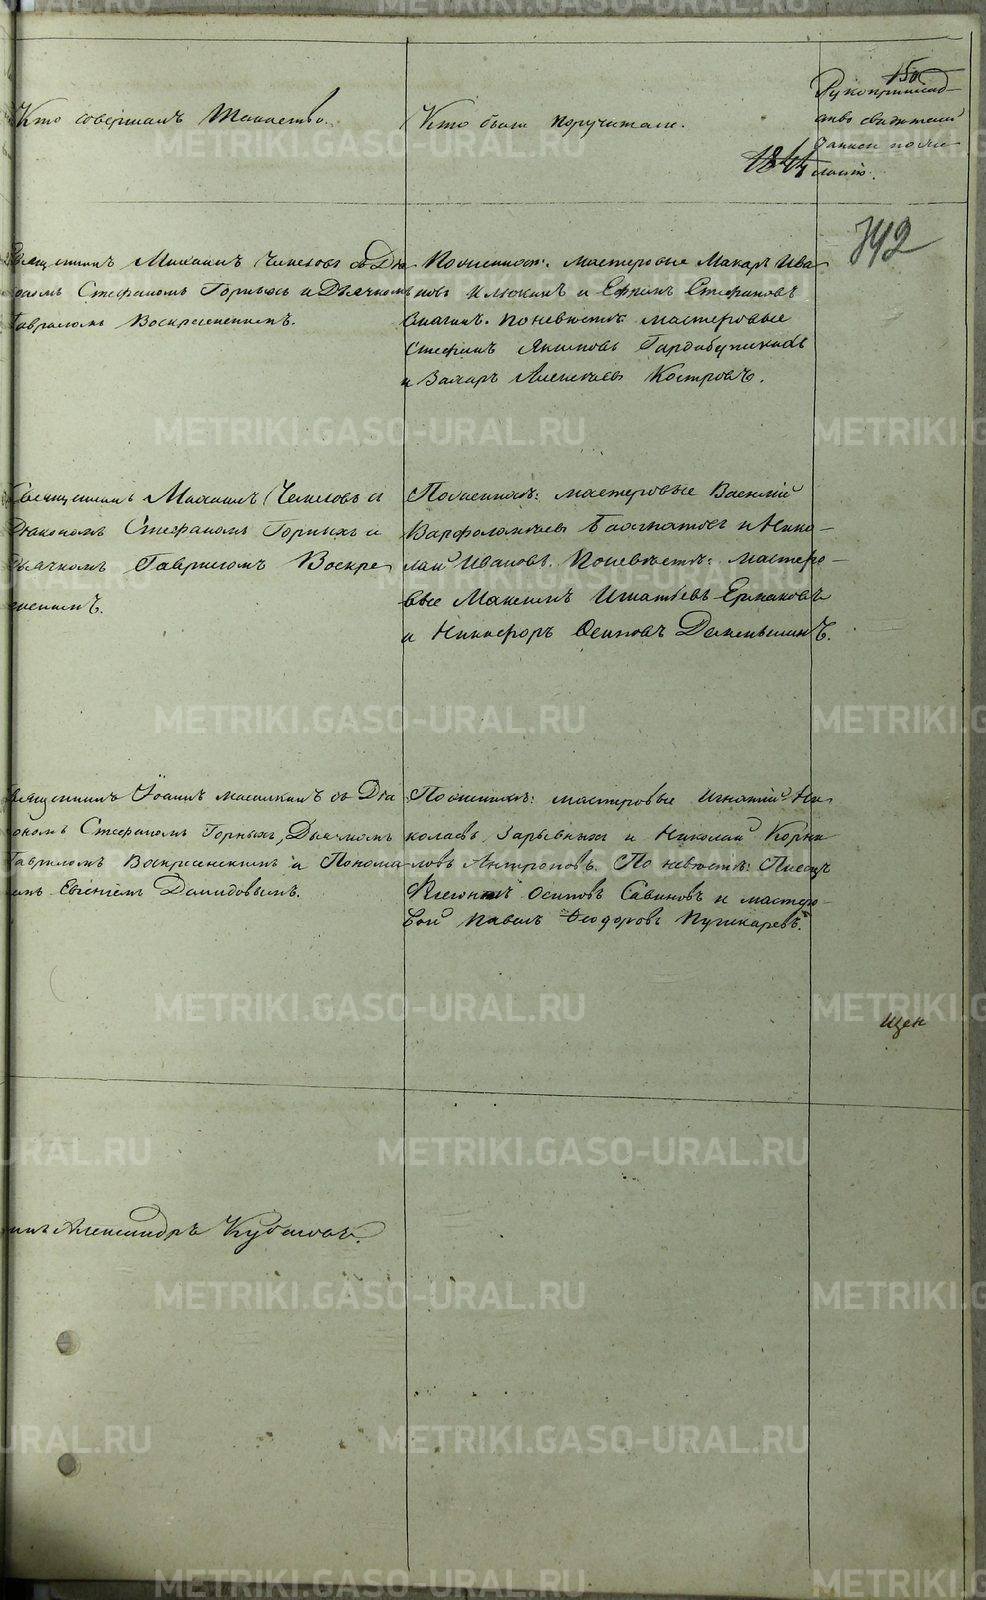 METRIKI.GASO-URAL.RU
150
Кто совершалъ Таинство.
Кто были поручители.
Рукоприклад-
ство свидетелей
записи по же-
ланію.
1844
392
Священникъ Михаилъ Чемезовъ съ Діа
кономъ Стефаномъ Горныхъ и Дьячкомъ
Гавриломъ Воскресенскимъ.
По женихѣ: мастеровые Макаръ Ива
новъ Илюкинъ и Ефимъ Стефановъ
по невѣстѣ: мастеровые
Стефанъ Якимовъ
и Захаръ Алексѣевъ Костровъ.
Священникъ Михаилъ Чемезовъ съ
Діакономъ Стефаномъ Горныхъ и
Дьячкомъ Гавриломъ Воскре
сенскимъ.
По женихѣ: мастеровые Василій
Варфоломѣевъ и Нико-
лай Ивановъ. По невѣстѣ: мастеро-
вые Максимъ Игнатьевъ Ермаковъ
и Никифоръ Осиповъ
Священникъ Іоаннъ съ Діа
кономъ Стефаномъ Горныхъ, Дьячкомъ
Гавриломъ Воскресенскимъ и Понома
ремъ Евгеніемъ Демидовымъ.
По женихѣ: мастеровые Игнатій Ни
колаевъ Зарывныхъ и Николай Корни
ловъ Антроповъ. По невѣстѣ: Писецъ
Осиповъ Савиновъ и мастеро-
вой Павелъ Ѳеодоровъ Пушкаревъ.
Щен
Александръ